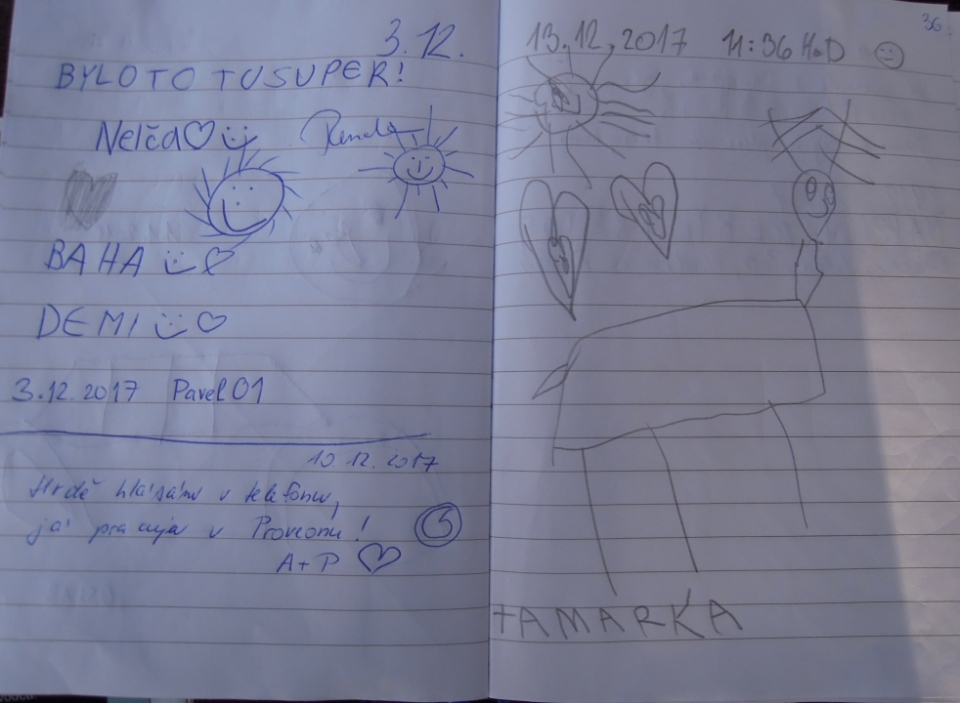 3.12.
BYLO TO TU SUPER!
Nelča
Renda
BAHA
DEMI
3.12.2017 Pavel 01
10.12.2017
Hrdě hlásám v telefonu,
já pracuja v Proveonu!
A+P
36
13.12,2017 11:36 HoD
tAMARKA